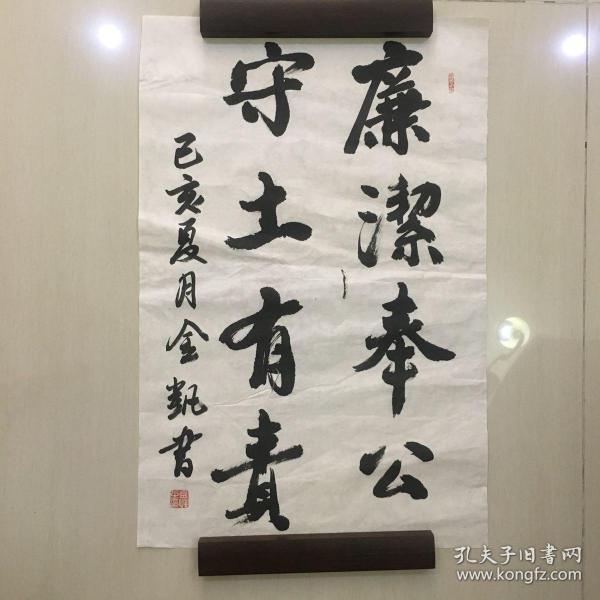 廉潔奉公
守土有責
己亥夏月金凱書
孔夫子旧書网
www.kongfz.com